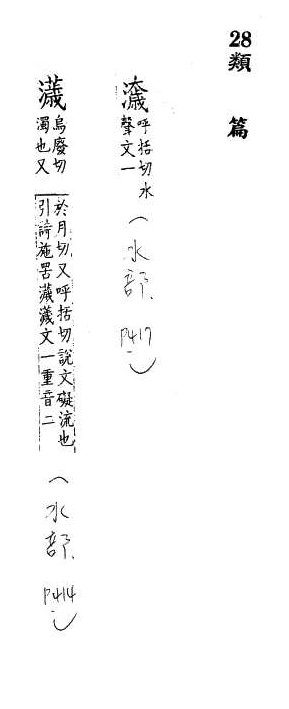 28類篇
呼括切水
聲文一
(水部, P417)
濊
烏廢切
濁也又
於月切又呼括切說文礙流也
引詩施罟濊濊文一重音二
(水部, P414)